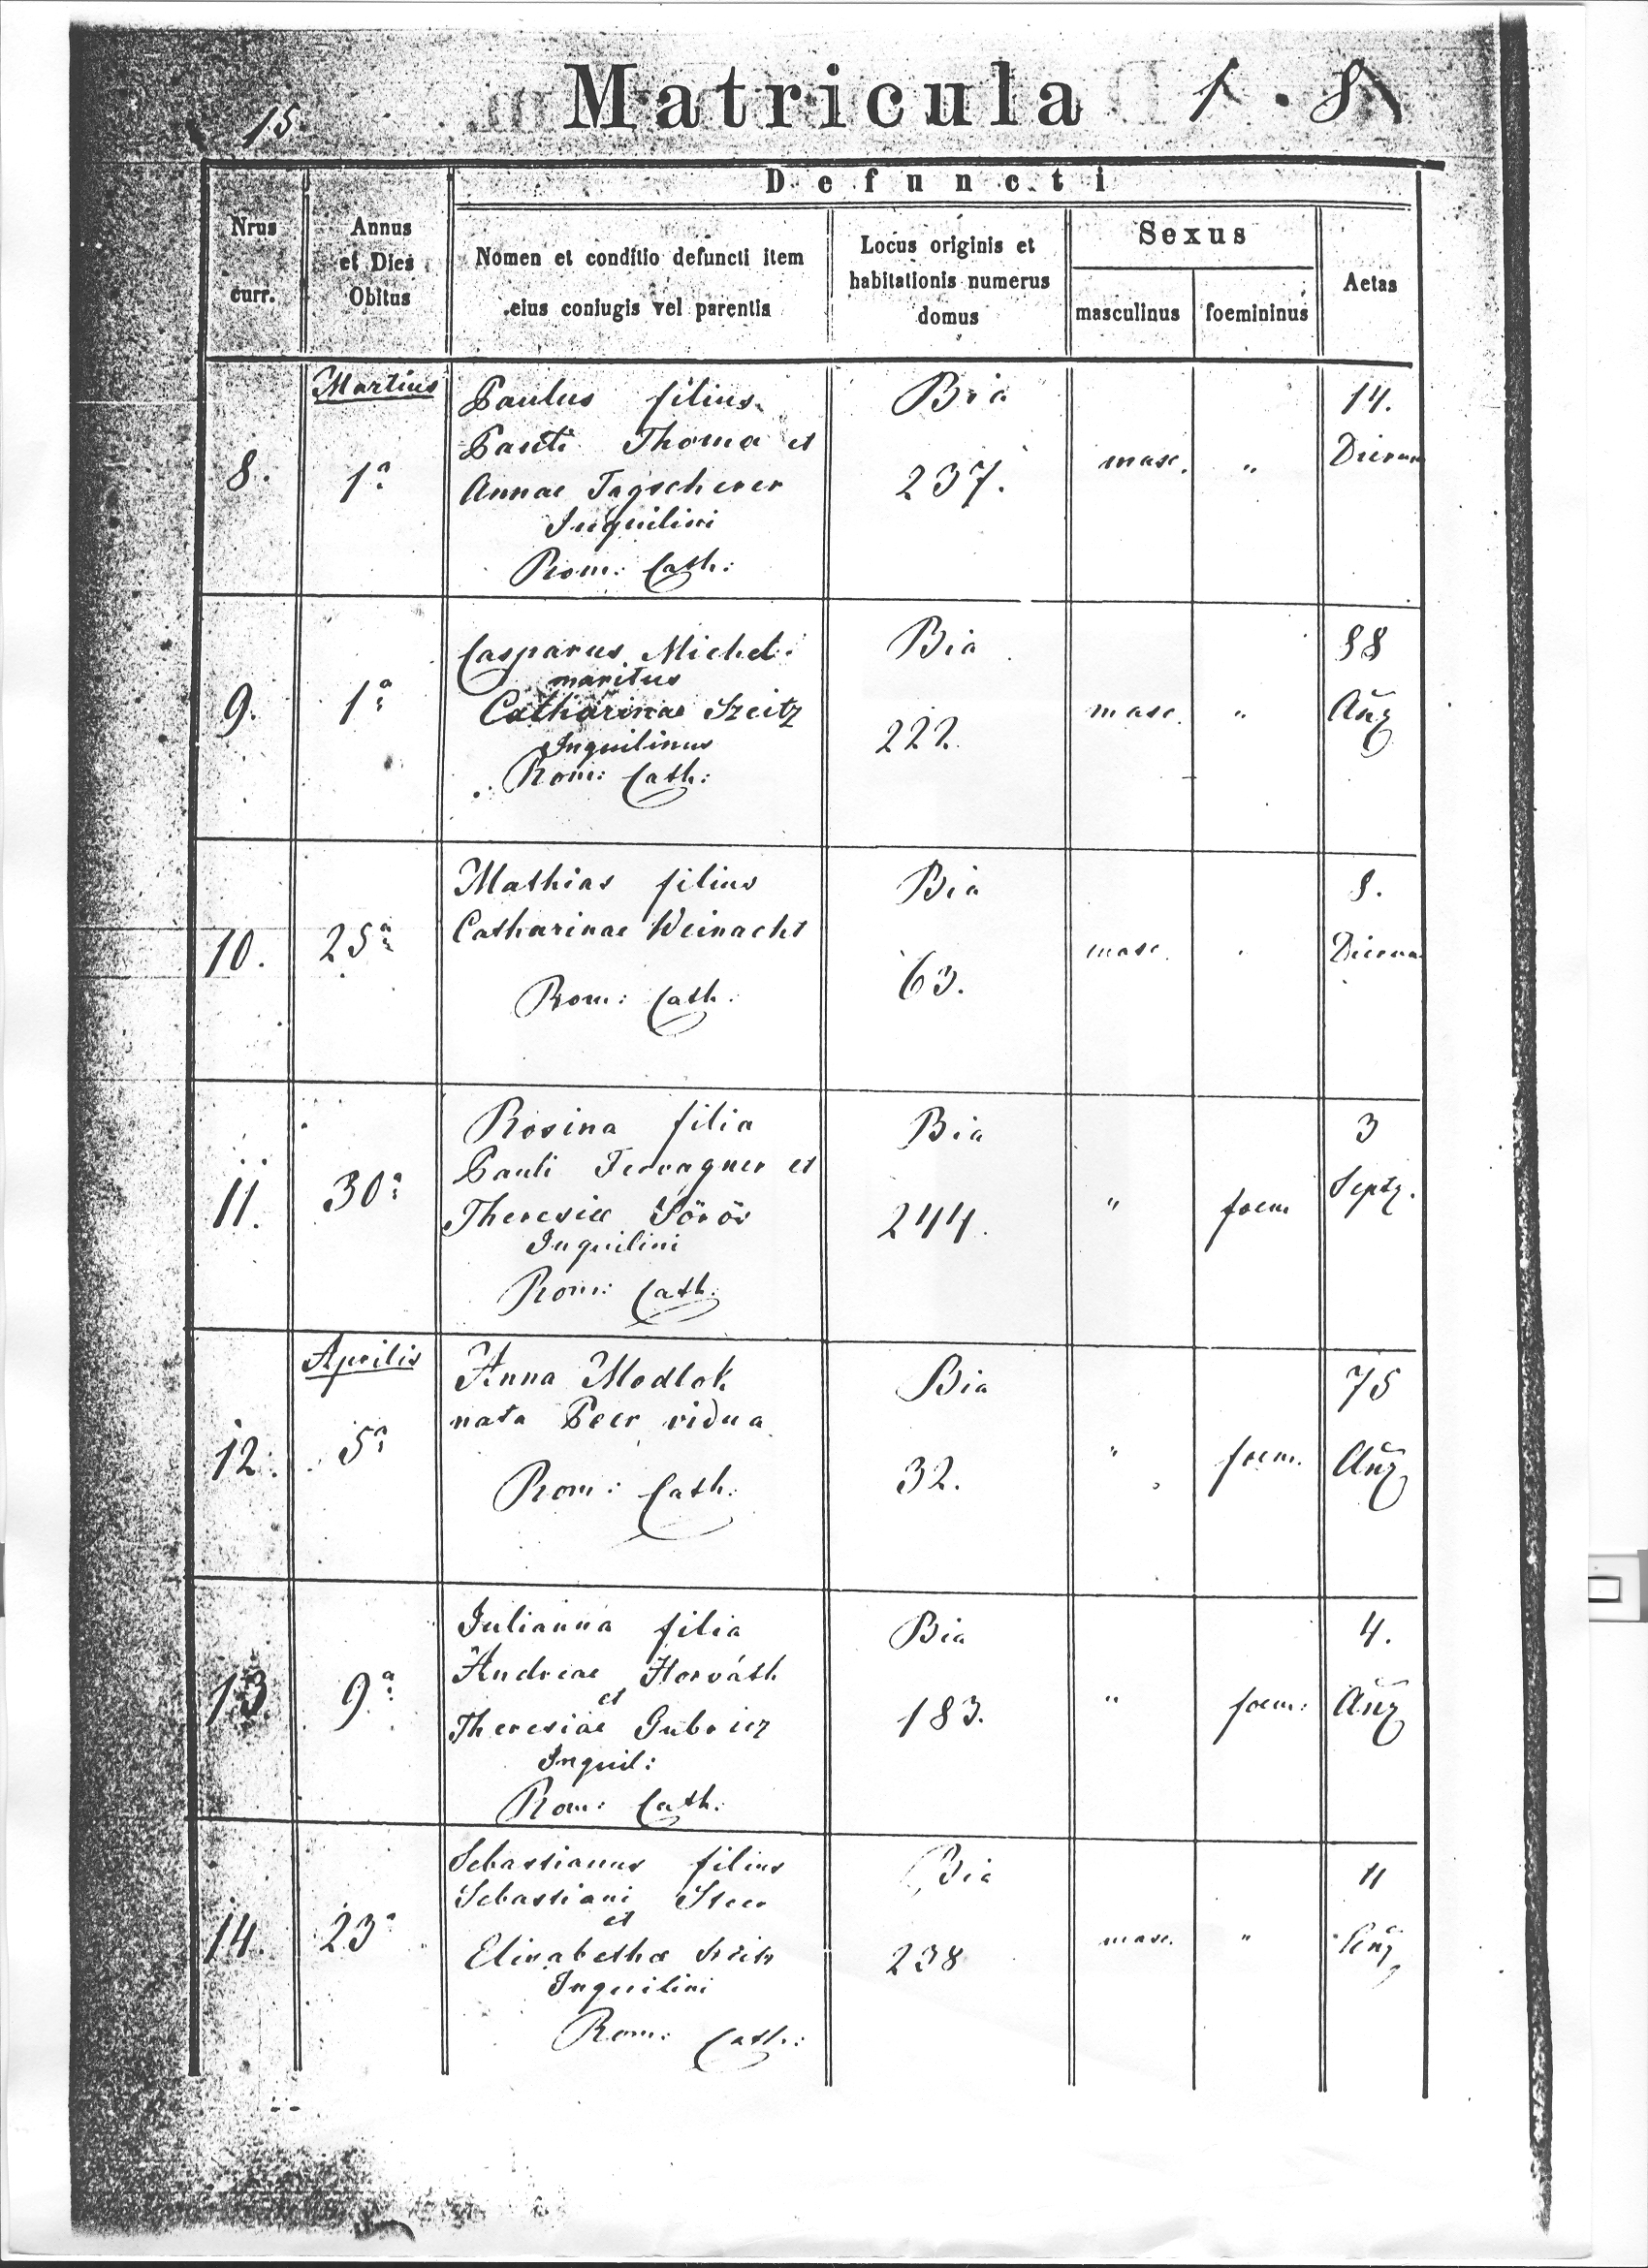 15.
Matricula 1 . 8
Defuncti
Nrus curr.
Annus et Dies Obitus
Nomen et conditio defuncti item eius coniugis vel parentis
Locus originis et habitationis numerus domus
Sexus
masculinus
foemininus
Aetas
Martius
8.
1ª
Paulus filius
Pauli Thoma et
Annae
Inquilini
Rom: Cath:
Bia
237.
masc.
"
14.
Dierum
9.
1ª
Casparus Michel
maritus
Catharinae Szeitz
Inquilinus
Rom: Cath:
Bia
222.
masc.
"
88
Añ
10.
25ª
Mathias filius
Catharinae Weinacht
Rom: Cath.
Bia
63.
masc.
"
8.
Dierum
11.
30ª
Rosina filia
Pauli et
Theresiae Sörös
Inquilini
Rom: Cath.
Bia
244.
"
foem
3
Septz.
Aprilis
12.
5ª
Anna Modlok
nata Peer vidua
Rom: Cath.
Bia
32.
"
foem.
75
Añ
13
9ª
Julianna filia
Andreae Horváth
et
Theresiae
Inquil:
Rom: Cath:
Bia
183.
"
foem:
4.
Añ
14.
23ª
Sebastianus filius
Sebastiani
et
Elisabethae
Inquilini
Rom: Cath:
Bia
238
masc.
"
11